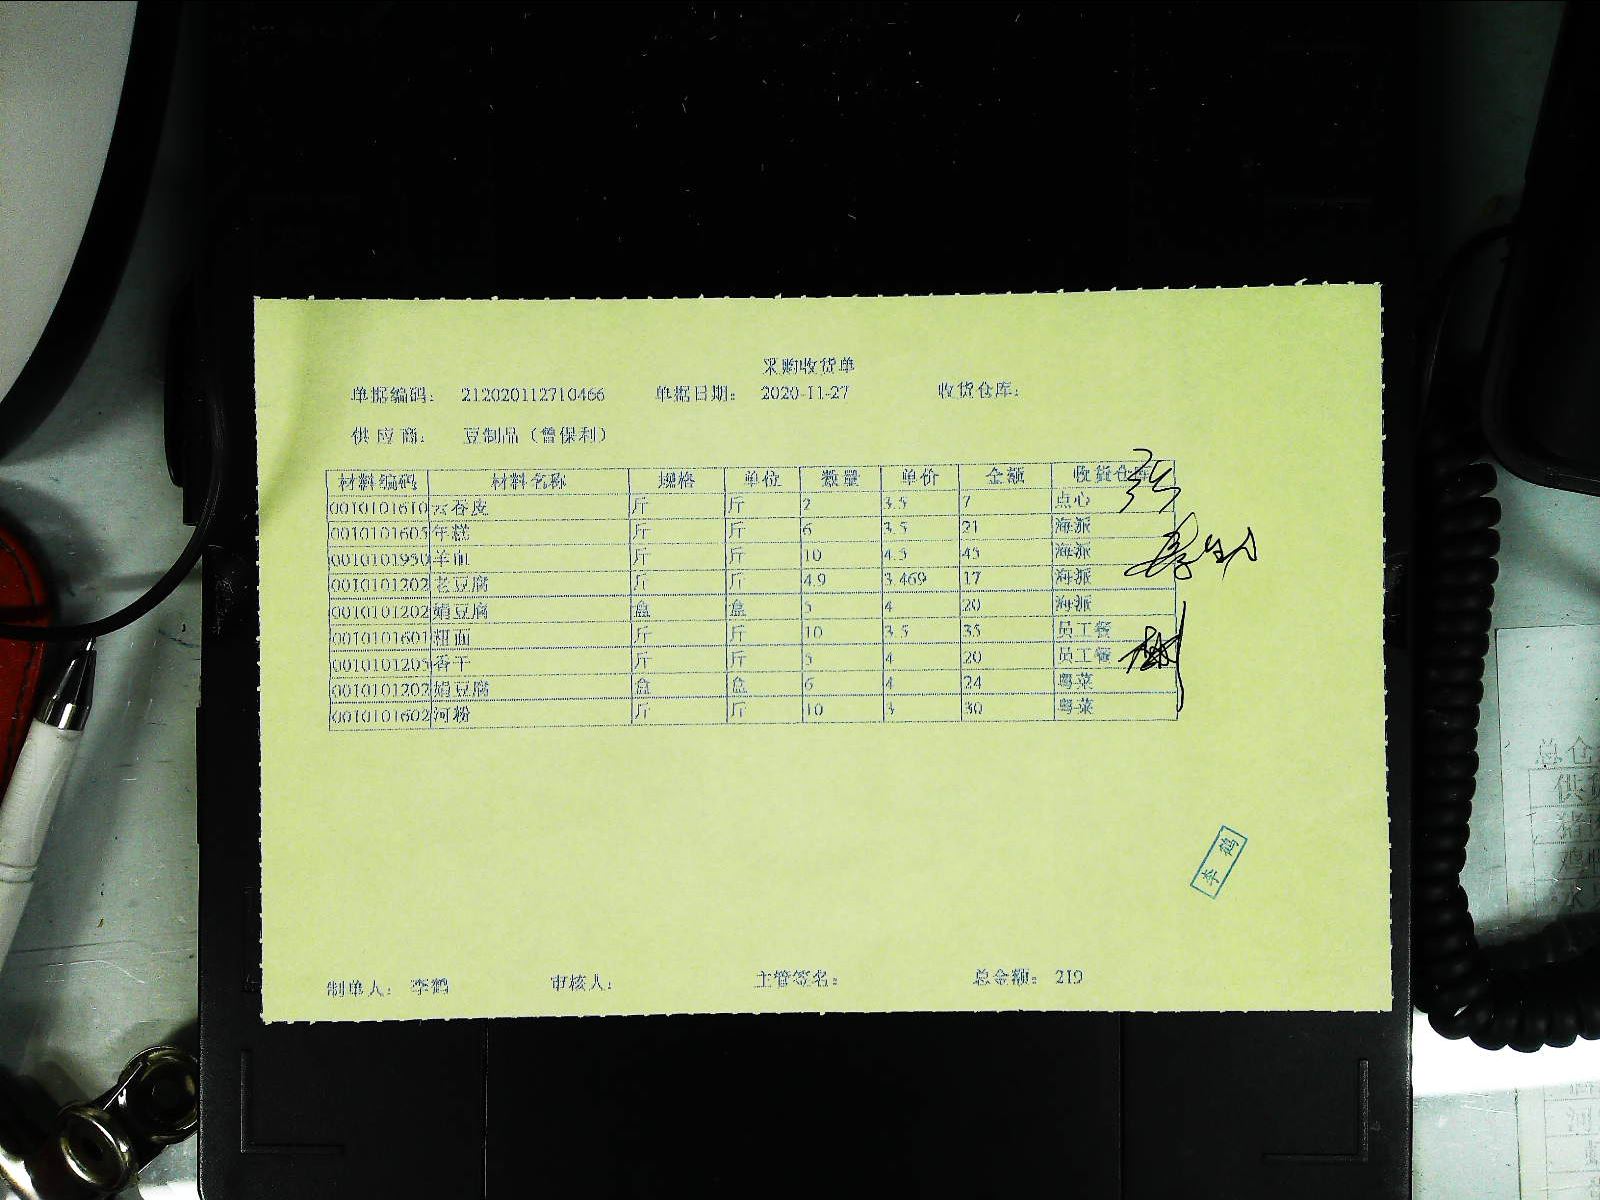 采购收货单
单据编码： 212020112710466 单据日期： 2020-11-27 收货仓库：
供 应 商： 豆制品（曾保利）
材料编码 材料名称 规格 单位 数量 单价 金额 收货仓库
0010101610 云吞皮 斤 斤 2 3.5 7 点心
0010101605 年糕 斤 斤 6 3.5 21 海派
0010101950 羊血 斤 斤 10 4.5 45 海派
0010101202 老豆腐 斤 斤 4.9 3.469 17 海派
0010101202 娟豆腐 盒 盒 5 4 20 海派
0010101601 粗面 斤 斤 10 3.5 35 员工餐
0010101205 香干 斤 斤 5 4 20 员工餐
0010101202 娟豆腐 盒 盒 6 4 24 粤菜
0010101602 河粉 斤 斤 10 3 30 粤菜
李鹤
制单人： 李鹤 审核人： 主管签名： 总金额： 219
总仓